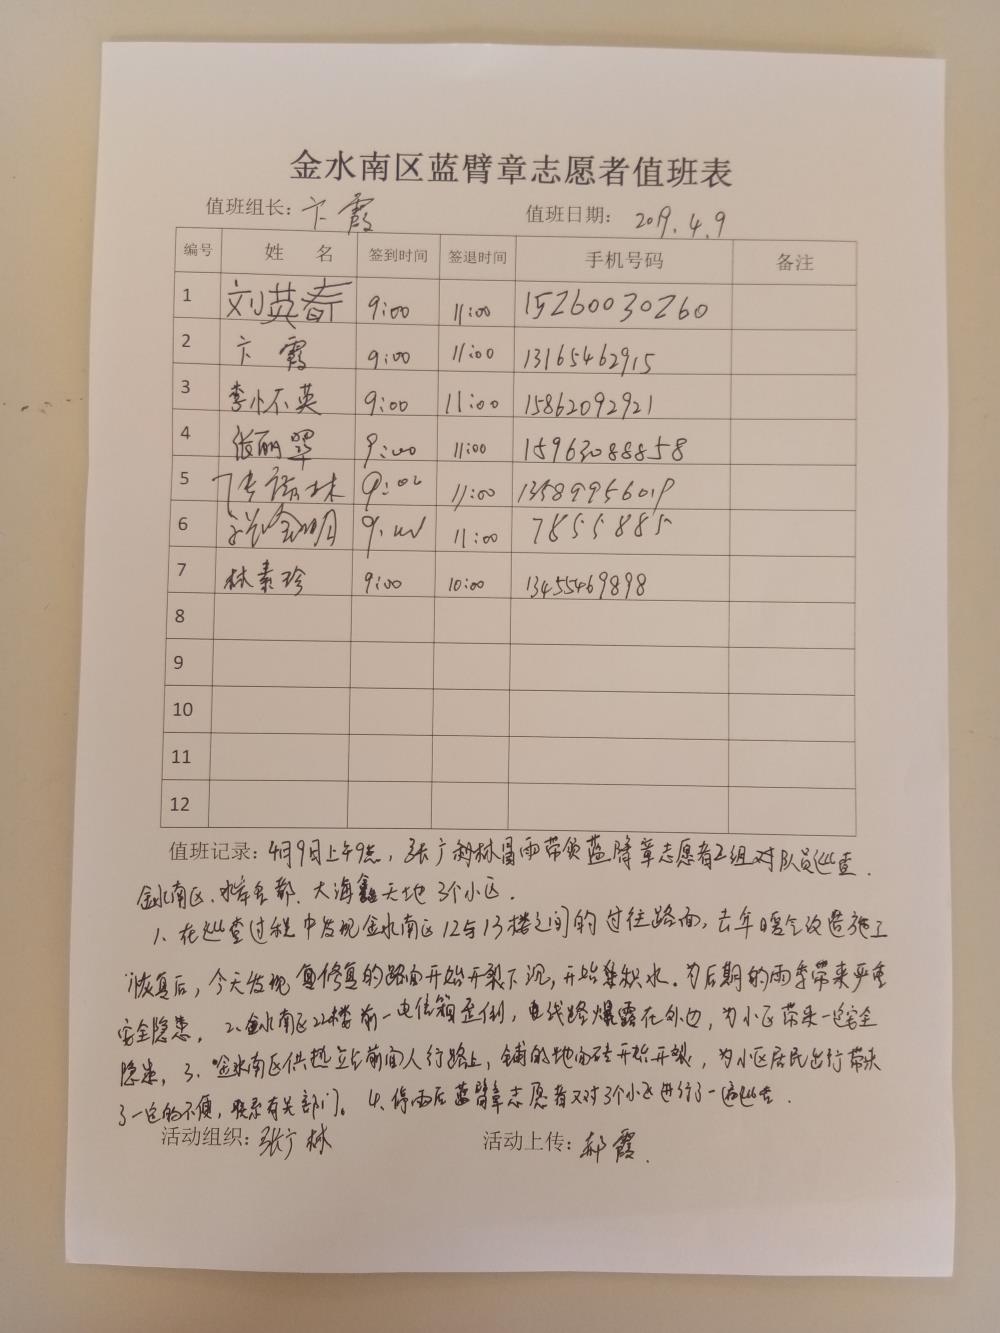 金水南区蓝臂章志愿者值班表
值班组长: 卞霞 值班日期: 2019.4.9
编号 姓 名 签到时间 签退时间 手机号码 备注
1 刘英春 9:00 11:00 15260030260
2 卞霞 9:00 11:00 13165462915
3 李小不英 9:00 11:00 15862092921
4 张丽翠 9:00 11:00 15963088858
5 林 9:00 11:00 13589956019
6 金明 9:00 11:00 7855885
7 林素珍 9:00 10:00 13455469898
8
9
10
11
12
值班记录: 4月9日上午9点, 张广林冒雨带领蓝臂章志愿者2组对队员巡查
金水南区、水岸名都、大海鑫天地3个小区.
1、在巡查过程中发现金水南区12与13楼之间的过往路面, 去年暖气改造施工
恢复后, 今天发现修复的路面开始开裂下沉, 开始积水. 为后期的雨季带来严重
安全隐患. 2、金水南区22楼前一电信箱歪倒, 电线路爆露在外边, 为小区带来一定安全
隐患. 3、金水南区供热站前面人行路上, 铺的地面砖开始开裂, 为小区居民出行带来
了一定的不便, 联系有关部门。 4、停雨后蓝臂章志愿者又对3个小区进行了一遍巡查.
活动组织: 张广林 活动上传: 郝霞.